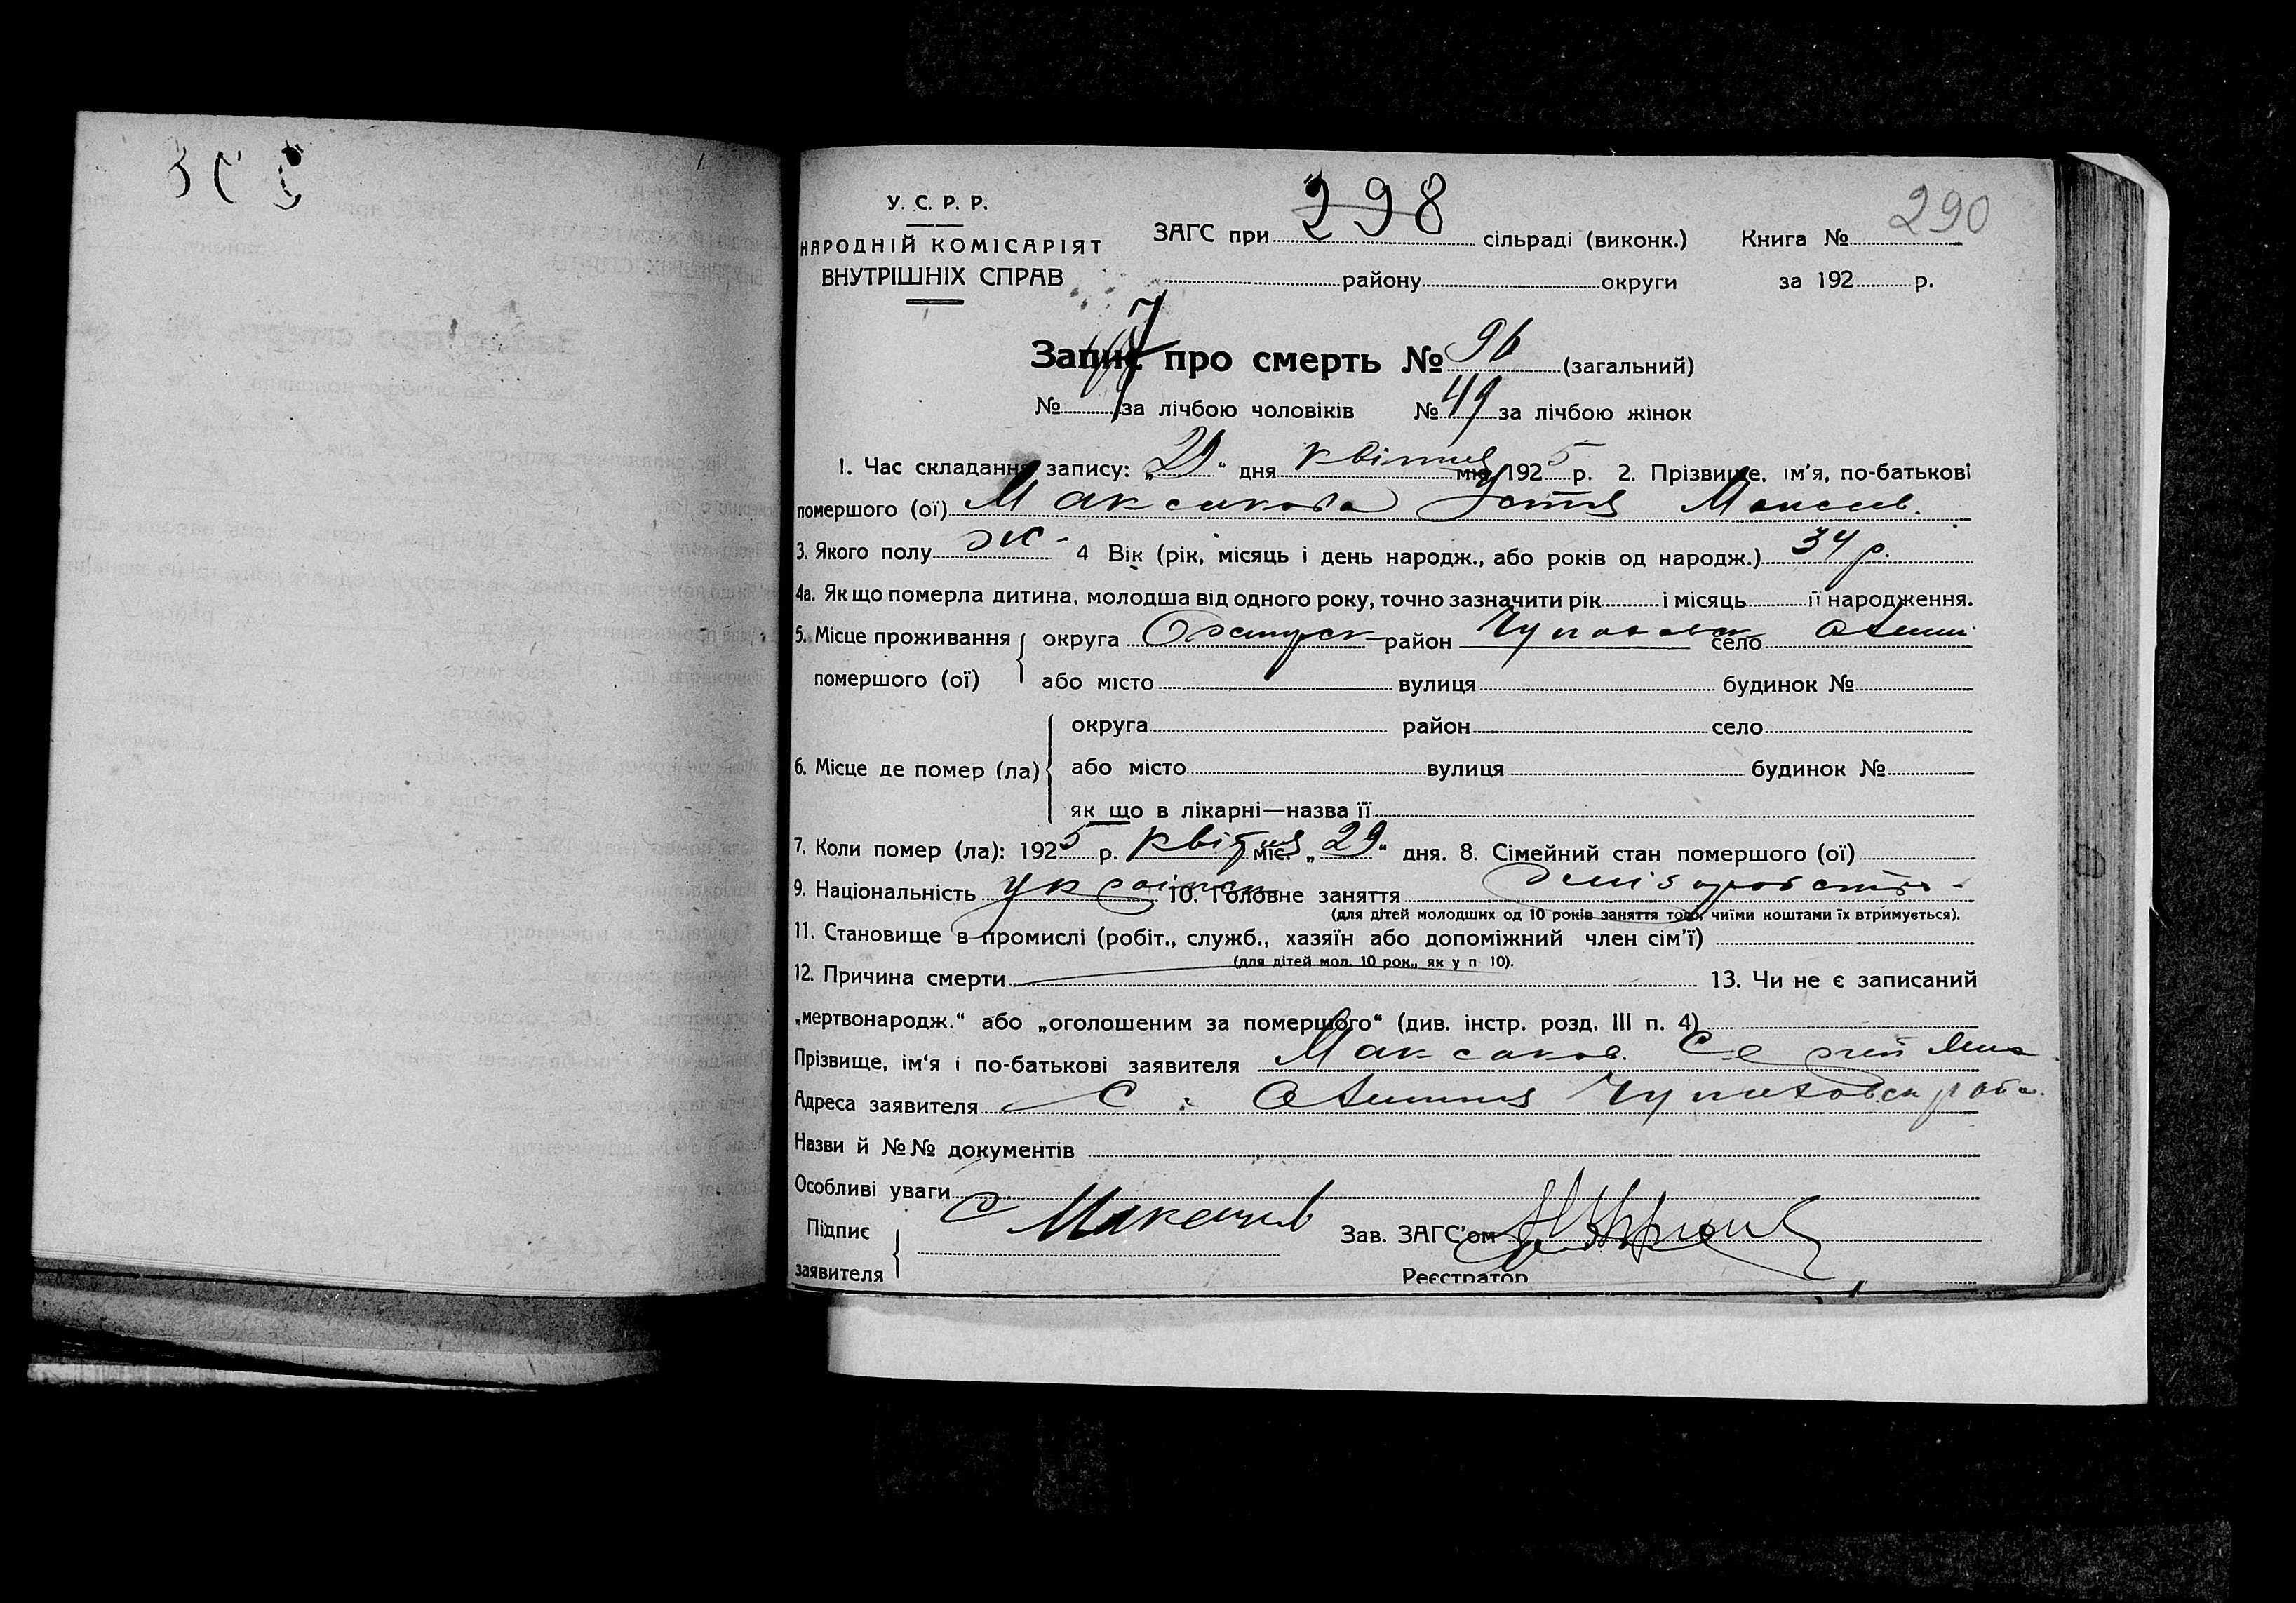 У. С. Р. Р.
НАРОДНІЙ КОМІСАРІЯТ
ВНУТРІШНІХ СПРАВ
ЗАГС при 298 сільраді (виконк.) Книга № 290
району округи за 192 р.
Запис про смерть № 96 (загальний)
№ за лічбою чоловіків № 49 за лічбою жінок
1. Час складання запису: „29“ дня квітня міс. 1925 р. 2. Прізвище, ім'я, по-батькові
помершого (ої) Максакова Устя
3. Якого полу ж- 4 Вік (рік, місяць і день народж., або років од народж.) 34 р.
4а. Як що померла дитина, молодша від одного року, точно зазначити рік і місяць її народження.
5. Місце проживання помершого (ої) округа район село
або місто вулиця будинок №
округа район село
6. Місце де помер (ла) або місто вулиця будинок №
як що в лікарні—назва її
7. Коли помер (ла): 1925 р. квітня міс. „29“ дня. 8. Сімейний стан помершого (ої)
9. Національність українск 10. Головне заняття
(для дітей молодших од 10 років заняття того, чиїми коштами їх втримується).
11. Становище в промислі (робіт., служб., хазяїн або допоміжний член сім'ї)
(для дітей мол. 10 рок., як у п 10).
12. Причина смерти 13. Чи не є записаний
„мертвонародж.“ або „оголошеним за помершого“ (див. інстр. розд. III п. 4)
Прізвище, ім'я і по-батькові заявителя Максаков Сергій
Адреса заявителя с.
Назви й №№ документів
Особливі уваги
Підпис заявителя С Максаков Зав. ЗАГС'ом
Реєстратор